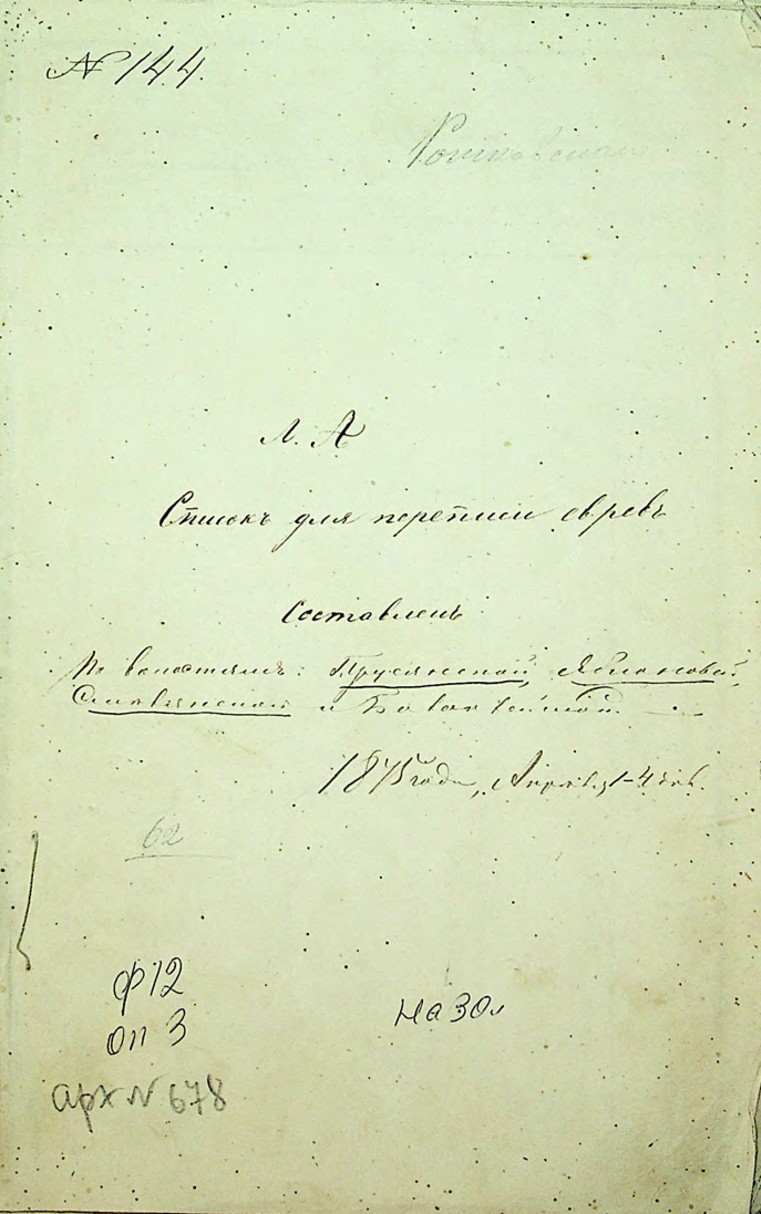 № 144.
Л. А
Списокъ для переписи евревъ
Составленъ
По волостямъ: Яблоновой,
и
1875 года, Апреля 1-4 дня.
62
ф 12
оп 3
арх № 678
на 30 л